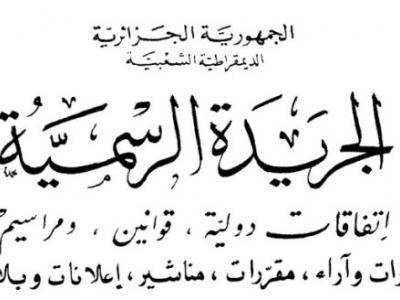 الجمهوريّة الجزائريّة
الديمقراطيّة الشعبيّة
الجريدة الرسميّة
اتفاقات دوليّة ، قوانين ، ومراسيم
وآراء ، مقرّرات ، مناشير ، إعلانات